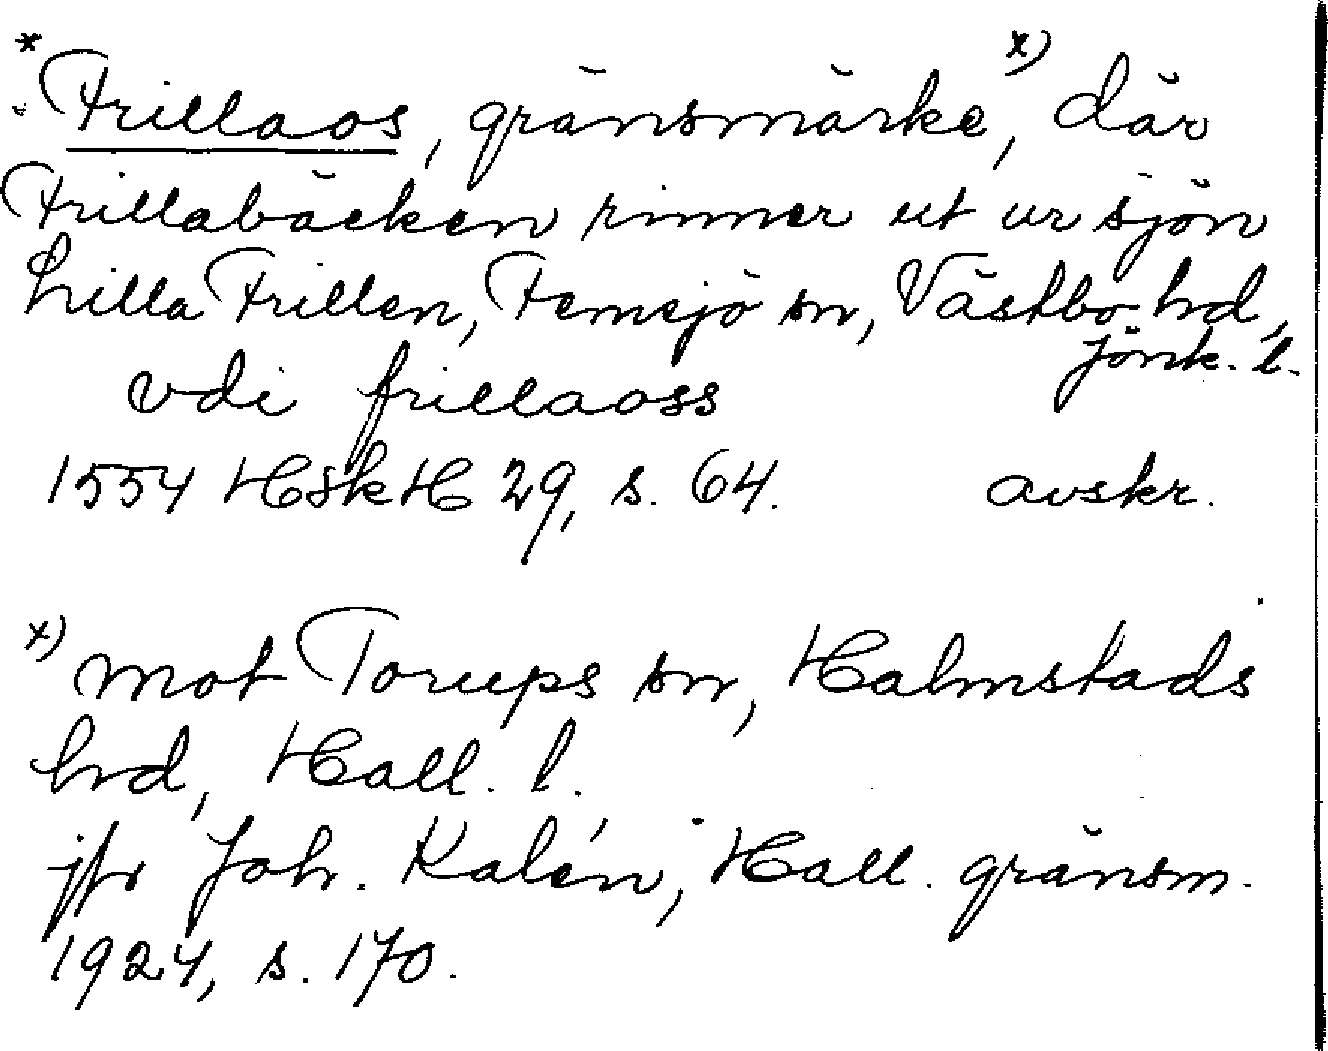 * Frillaos, gränsmärke x), där
Frillabäcken rinner ut ur sjön
Lilla Frillen, Femsjö sn, Västbo hd,
Jönk. l.
vdi frillaoss
1554 HSkH 29, s. 64. avskr.
x) mot Torups sn, Halmstads
hd, Hall. l.
jfr Joh. Kalén, Hall. gränsm.
1924, s. 170.